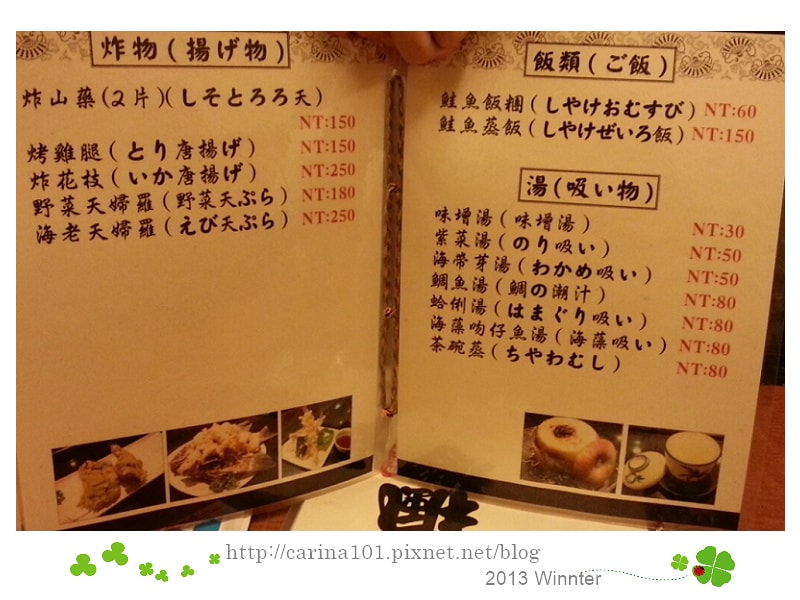 炸物(揚げ物)
炸山藥(2片)(しそとろろ天)
NT:150
烤雞腿(とり唐揚げ) NT:150
炸花枝(いか唐揚げ) NT:250
野菜天婦羅(野菜天ぷら) NT:180
海老天婦羅(えび天ぷら) NT:250
飯類(ご飯)
鮭魚飯糰(しやけおむすび) NT:60
鮭魚蒸飯(しやけぜいろ飯) NT:150
湯(吸い物)
味增湯(味增湯) NT:30
紫菜湯(のり吸い) NT:50
海帶芽湯(わかめ吸い) NT:50
鯛魚湯(鯛の潮汁) NT:80
蛤俐湯(はまぐり吸い) NT:80
海藻吻仔魚湯(海藻吸い) NT:80
茶碗蒸(ちやわむし) NT:80
http://carina101.pixnet.net/blog
2013 Winnter